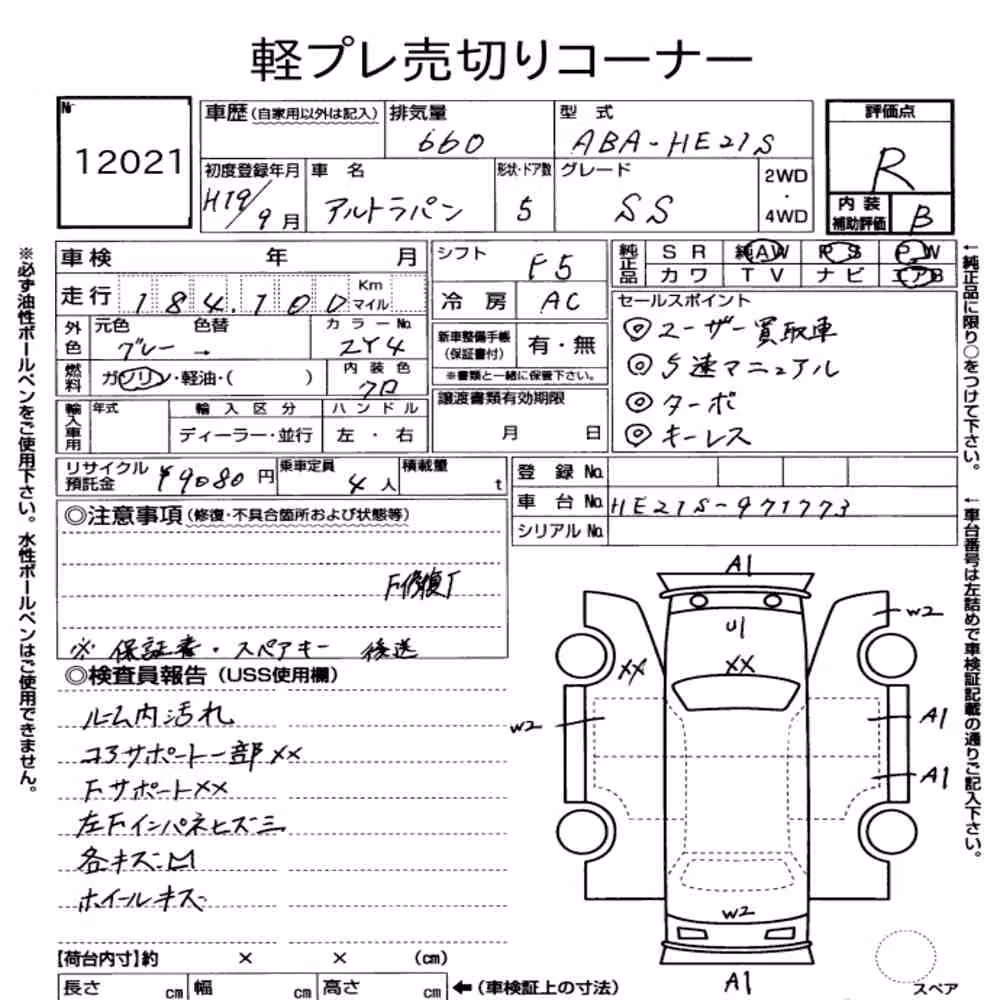 軽プレ売切りコーナー
№ 12021
車歴(自家用以外は記入) 排気量 660 型式 ABA-HE21S
初度登録年月 H19/9月 車名 アルトラパン 形状・ドア数 5 グレード SS 2WD・4WD
評価点 R
内装補助評価 B
車検 年 月
シフト F5
純正品 SR 純AW PS PW
カワ TV ナビ エアB
走行 184,100 Km マイル
冷房 AC
セールスポイント
◎ユーザー買取車
◎5速マニュアル
◎ターボ
◎キーレス
外色 元色 グレー 色替 → カラーNo. ZY4
新車整備手帳(保証書付) 有・無
※書類と一緒に保管下さい。
燃料 ガソリン・軽油・( ) 内装色 クロ
譲渡書類有効期限 月 日
輸入車用 年式 輸入区分 ディーラー・並行 ハンドル 左・右
リサイクル預託金 ¥9080円 乗車定員 4人 積載量 t
登録No.
車台No. HE21S-971773
シリアルNo.
◎注意事項(修復・不具合箇所および状態等)
F修復歴
※ 保証書・スペアキー 後送
◎検査員報告(USS使用欄)
ルーム内汚れ
コアサポート一部××
Fサポート××
左Fインパネヒズミ
各キズ凹
ホイールキズ
【荷台内寸】約 × × (cm)
長さ cm 幅 cm 高さ cm ←(車検証上の寸法)
A1
U1
W2
XX
XX
W2
A1
A1
W2
A1
スペア
※必ず油性ボールペンをご使用下さい。水性ボールペンはご使用できません。
←純正品に限り○をつけて下さい。
←車台番号は左詰めで車検証記載の通りご記入下さい。